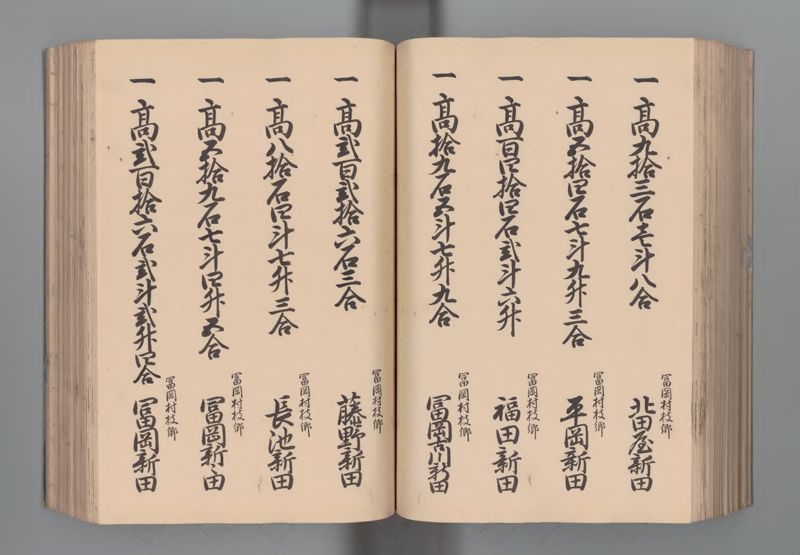 一 高九拾三石壱斗八合
冨岡村枝郷
北田屋新田
一 高五拾四石七斗九升三合
冨岡村枝郷
平岡新田
一 高百四拾四石弐斗六升
冨岡村枝郷
福田新田
一 高拾九石五斗七升九合
冨岡村枝郷
冨岡古川新田
一 高弐百弐拾六石三合
冨岡村枝郷
藤野新田
一 高八拾石四斗七升三合
冨岡村枝郷
長池新田
一 高五拾九石七斗四升五合
冨岡村枝郷
冨岡新々田
一 高弐百拾六石弐斗弐升四合
冨岡村枝郷
冨岡新田